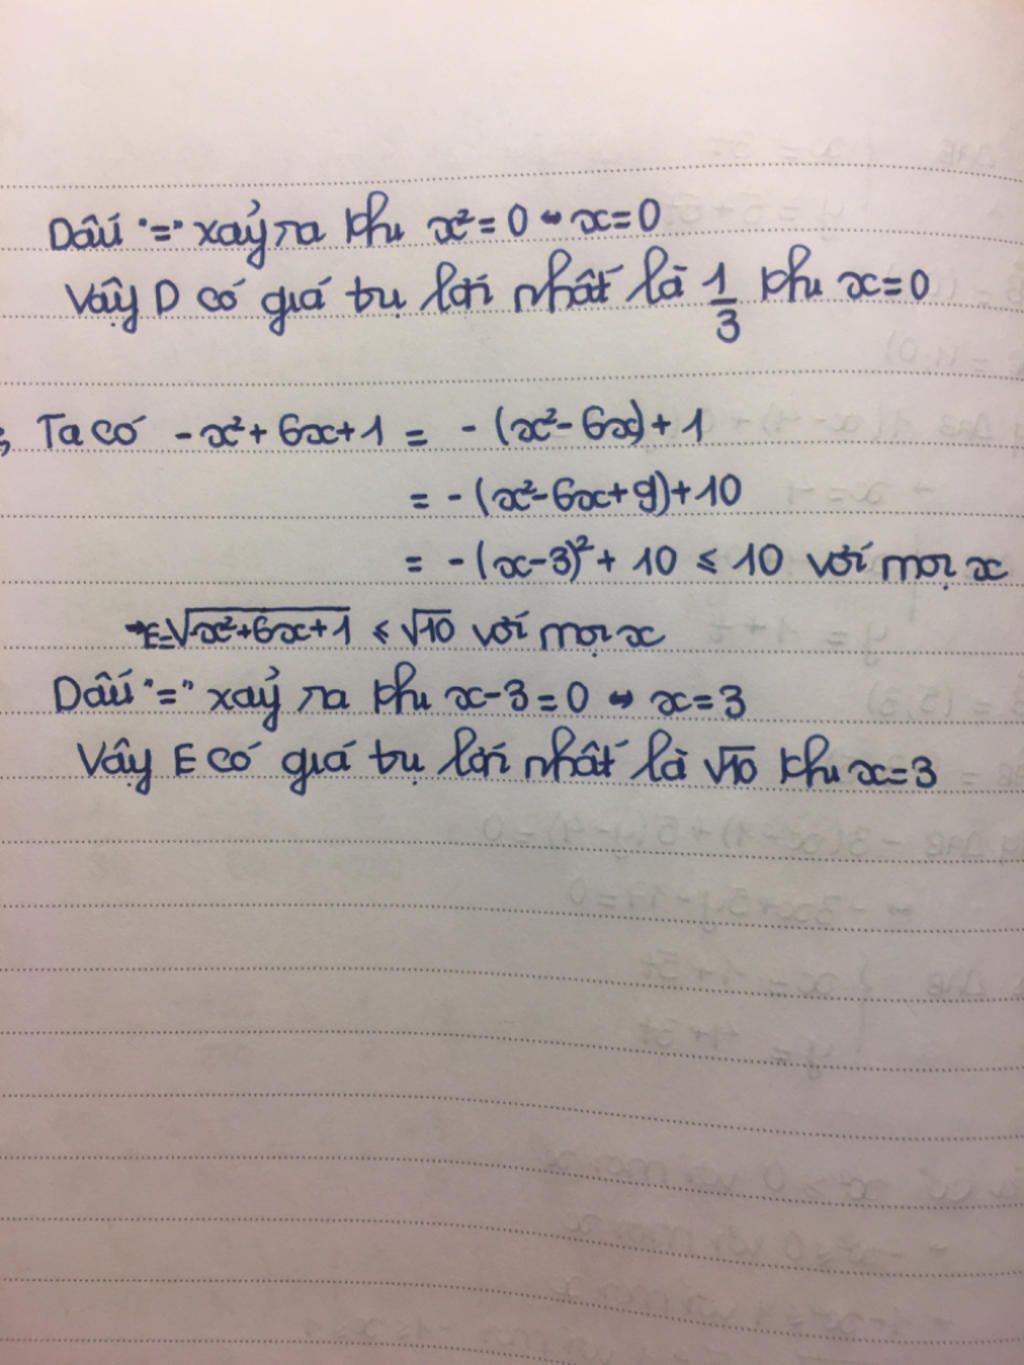 Dấu "=" xảy ra khi x² = 0 ⇔ x = 0
Vậy D có giá trị lớn nhất là 1/3 khi x = 0
Ta có -x² + 6x + 1 = - (x² - 6x) + 1
= - (x² - 6x + 9) + 10
= - (x - 3)² + 10 ≤ 10 với mọi x
→ E = √(-x² + 6x + 1) ≤ √10 với mọi x
Dấu "=" xảy ra khi x - 3 = 0 ⇔ x = 3
Vậy E có giá trị lớn nhất là √10 khi x = 3